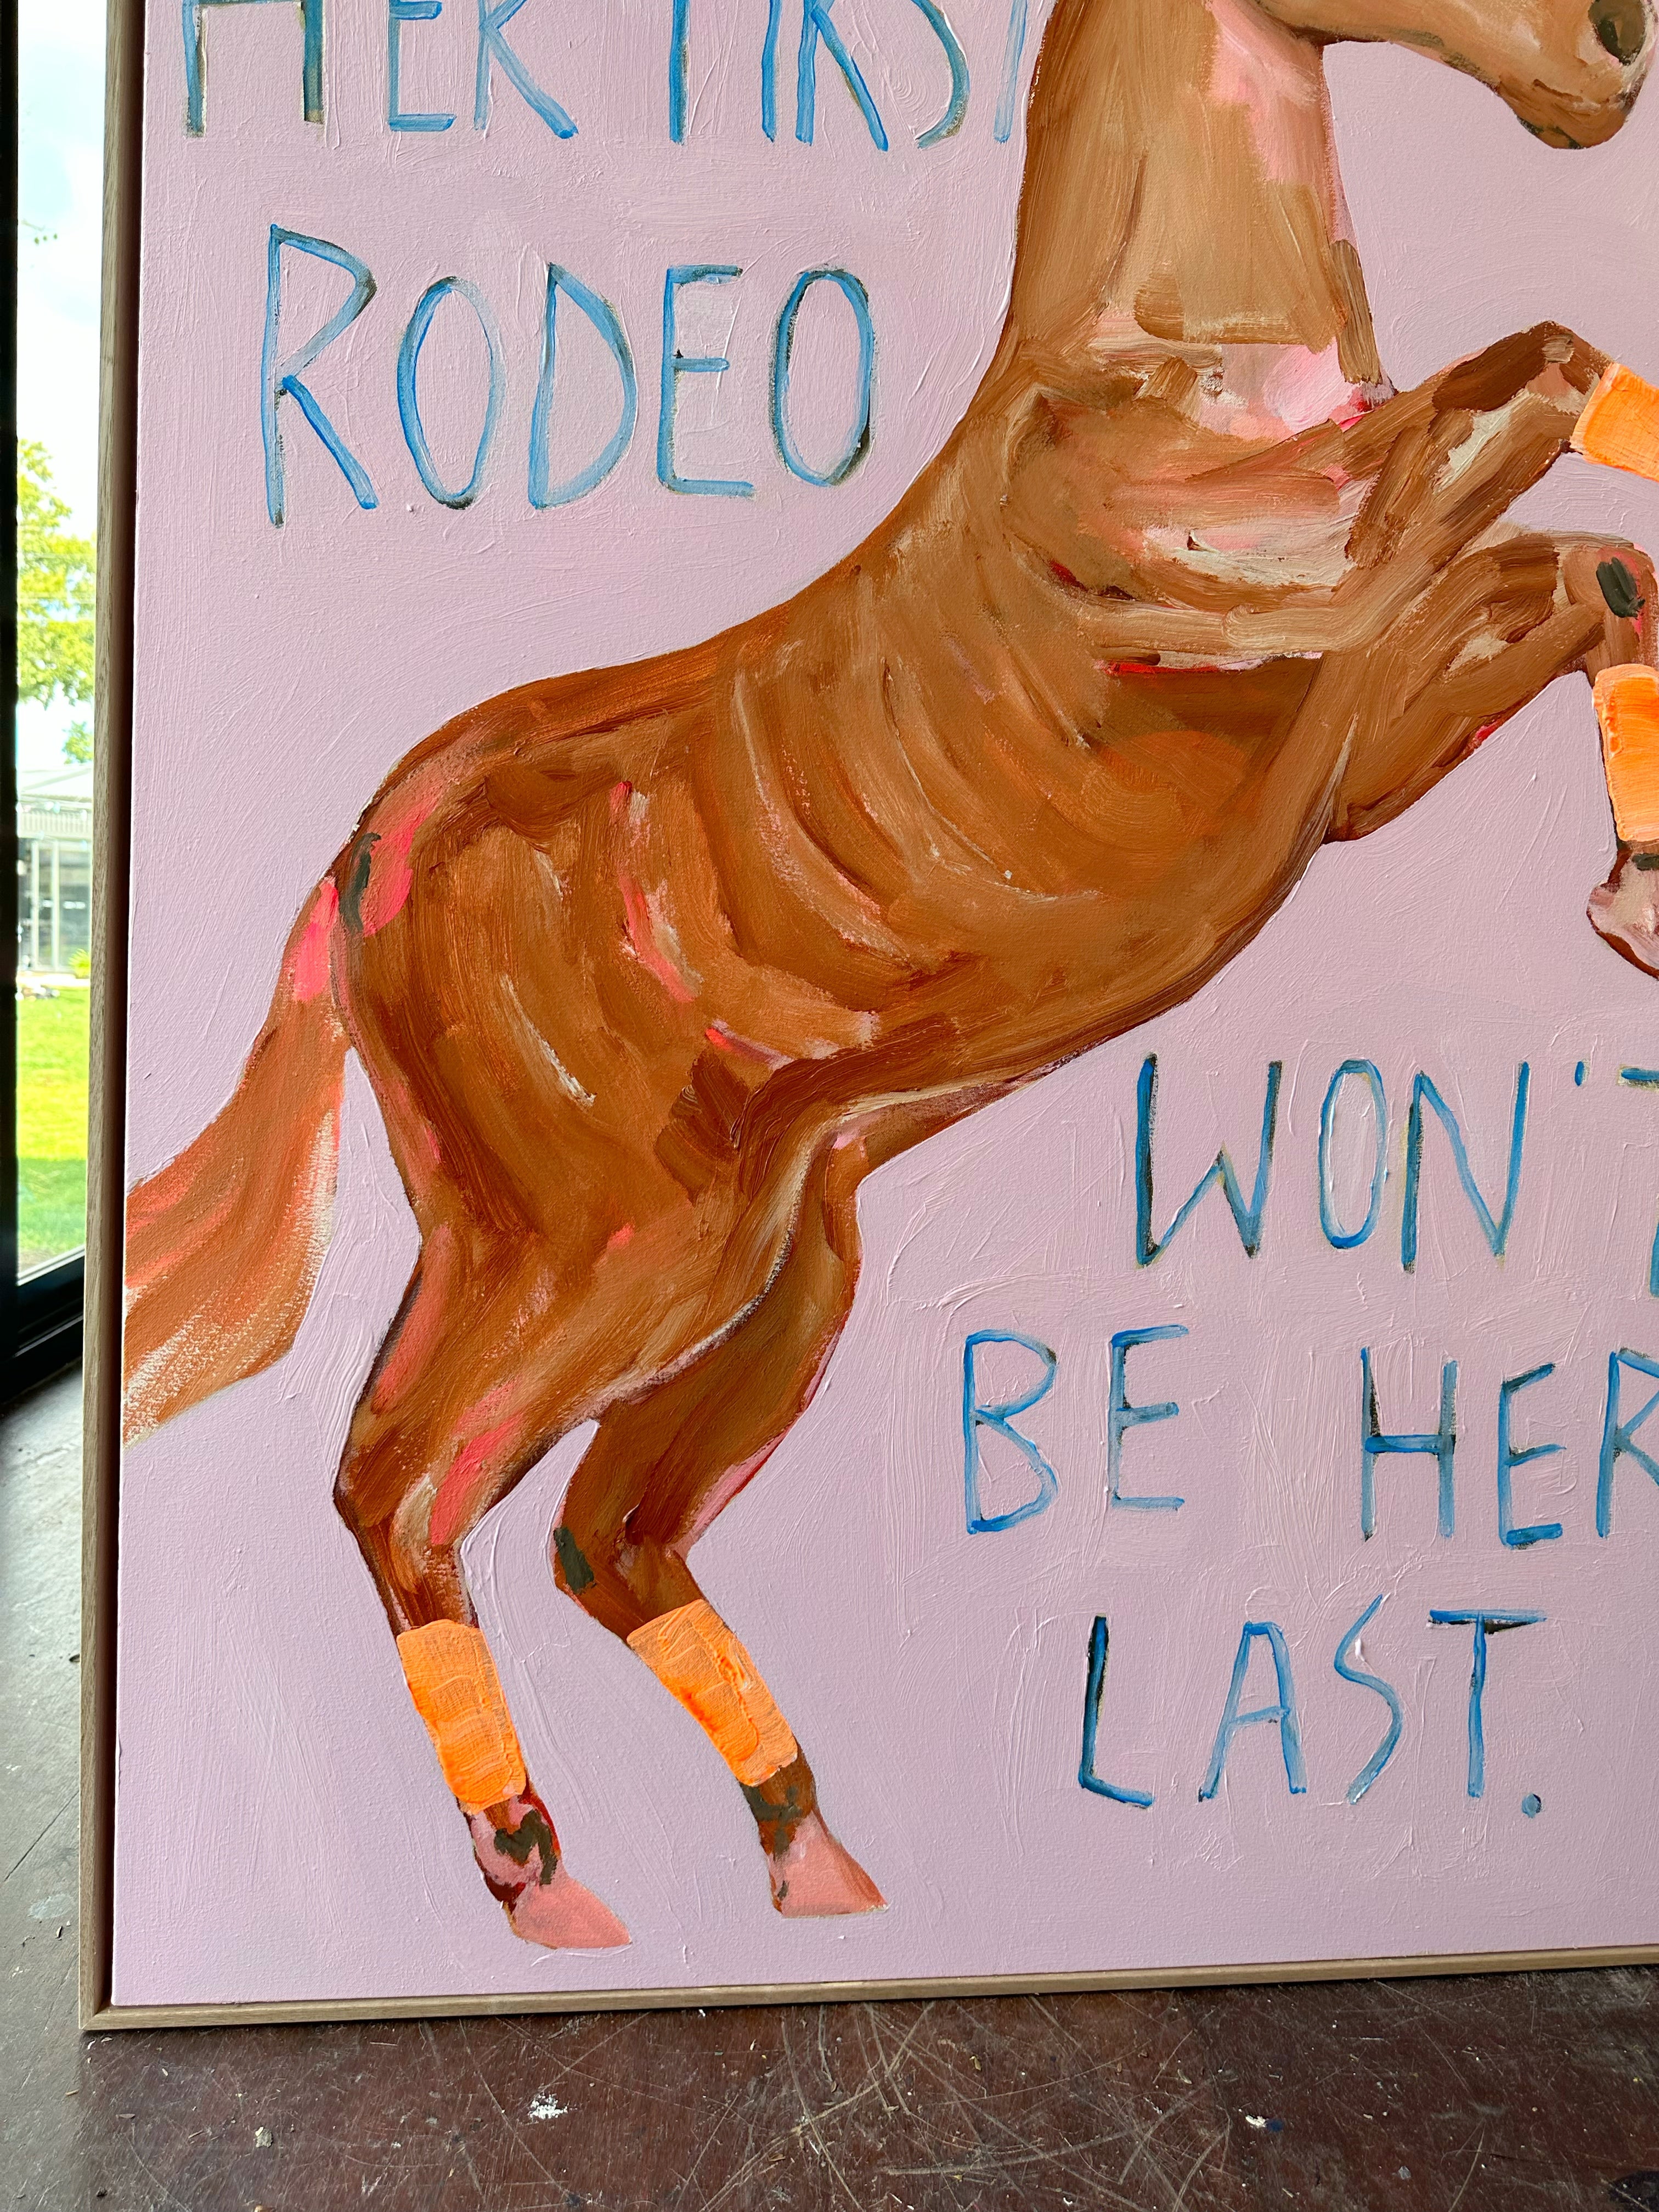 HER FIRST
RODEO
WON'T
BE HER
LAST.